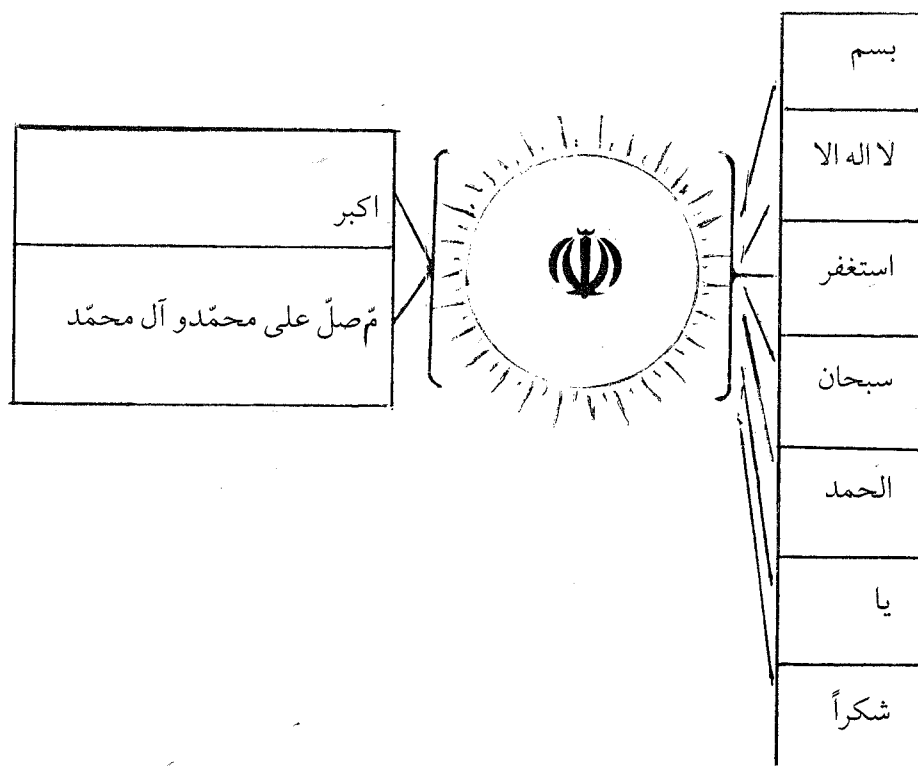 بسم
لا اله الا
استغفر
سبحان
الحمد
یا
شکراً
اکبر
مّ صلّ علی محمّدو آل محمّد